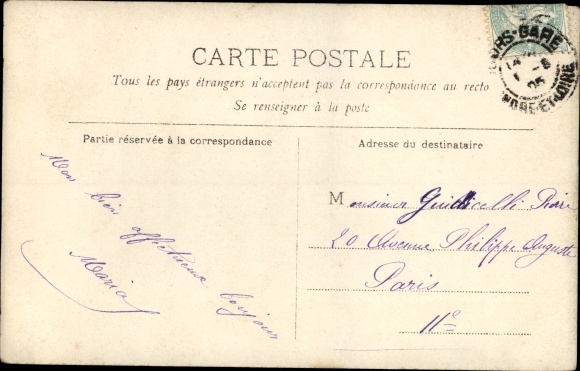 CARTE POSTALE
Tous les pays étrangers n'acceptent pas la correspondance au recto
Se renseigner à la poste
Partie réservée à la correspondance
Adresse du destinataire
Mon bien
affectueux bonjour
Maria
Monsieur Guillicelli Pierre
20 Avenue Philippe Auguste
Paris
11e
TOURS-GARE
14
1 -8
05
INDRE-ET-LOIRE